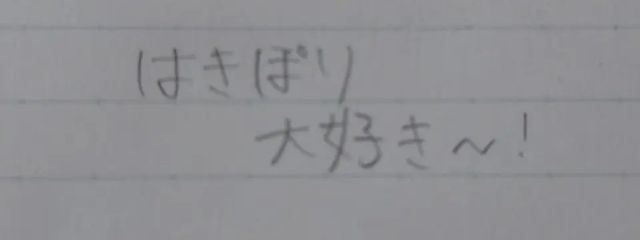 はきぽり
大好き〜!